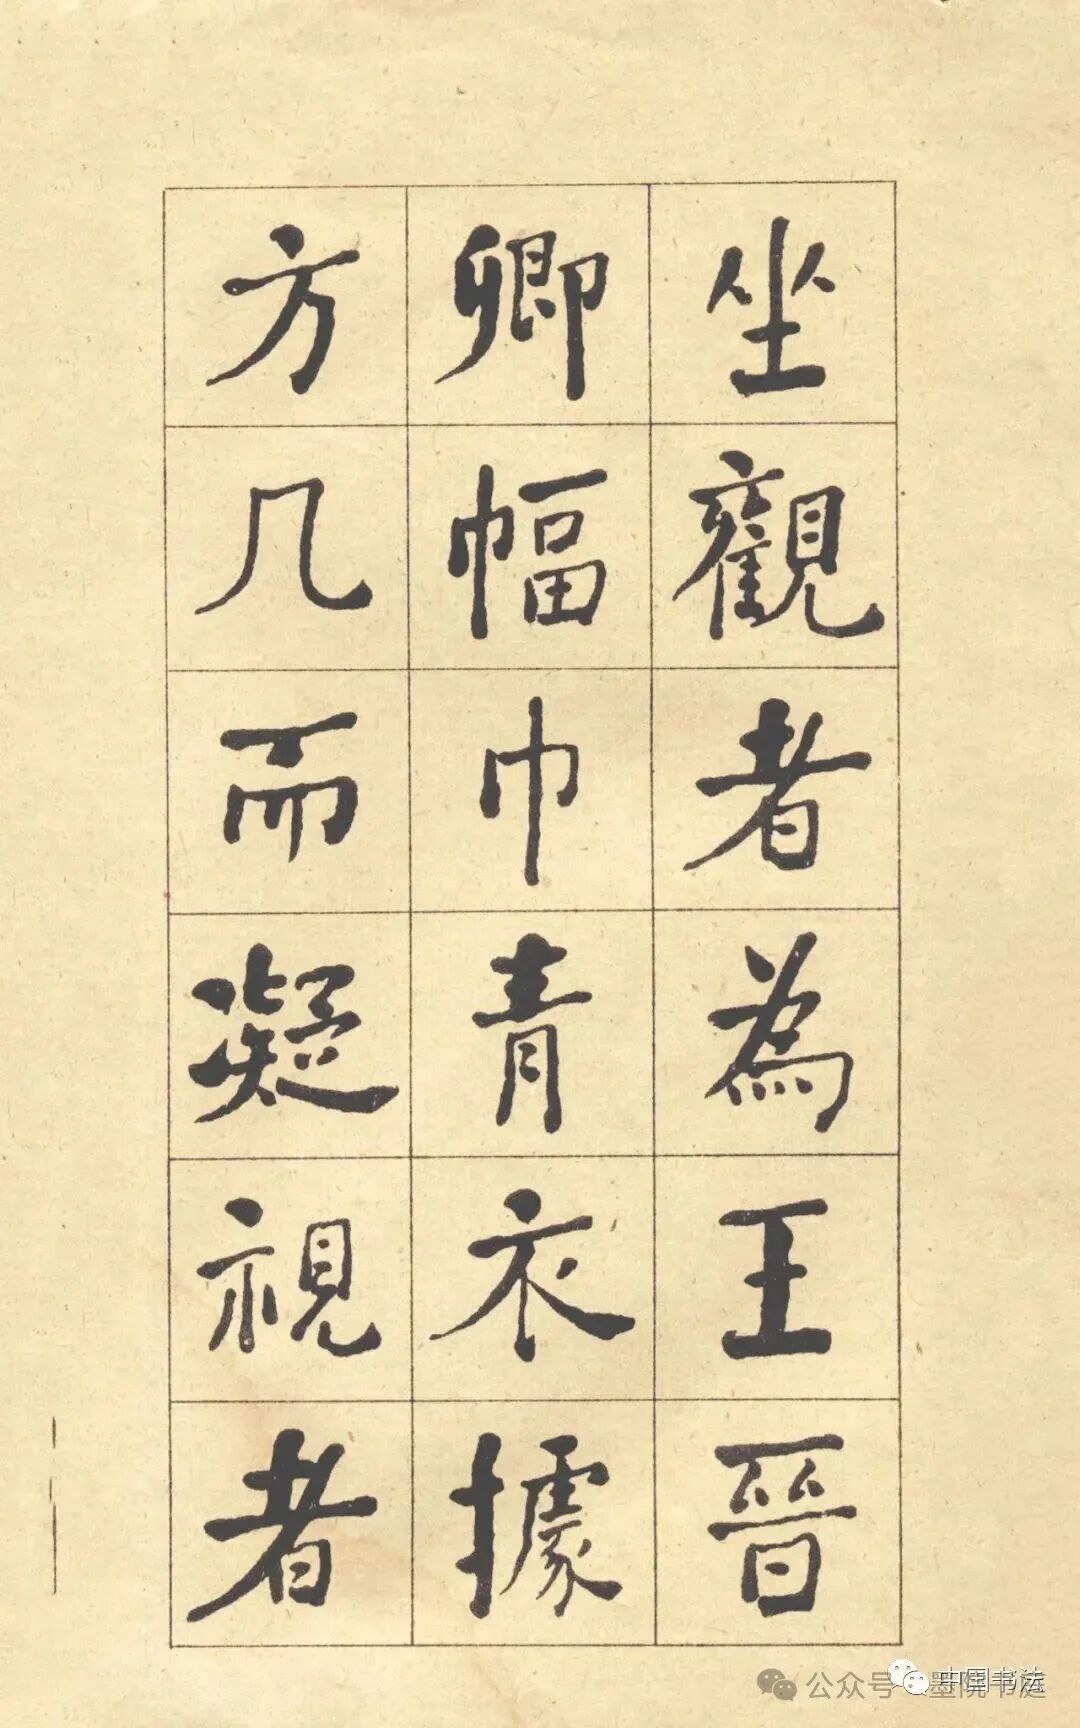 坐觀者為王晉
卿幅巾青衣據
方几而凝視者
公众号
中国书法